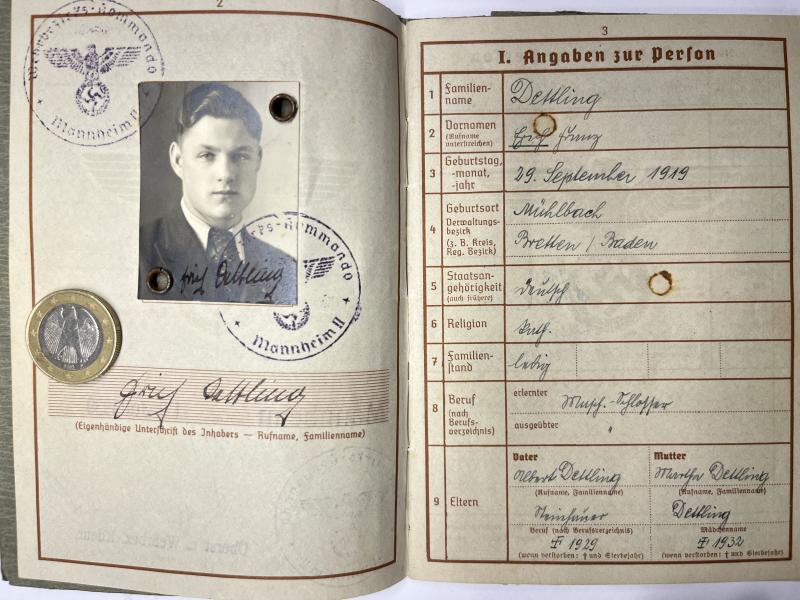 2
Wehrbezirks-Kommando
Mannheim II
Erich Dettling
Mannheim II
Erich Dettling
(Eigenhändige Unterschrift des Inhabers — Rufname, Familienname)
3
I. Angaben zur Person
1 Familien-
name
Dettling
2 Vornamen
(Rufname
unterstreichen)
Erich Franz
3 Geburtstag,
-monat,
-jahr
29. September 1919
4 Geburtsort
Verwaltungs-
bezirk
(z. B. Kreis,
Reg. Bezirk)
Mühlbach
Bretten / Baden
5 Staatsan-
gehörigkeit
(auch frühere)
deutsch
6 Religion
kath.
7 Familien-
stand
ledig
8 Beruf
(nach
Berufs-
verzeichnis)
erlernter
Masch.-Schlosser
ausgeübter
"
9 Eltern
Vater
Albert Dettling
(Rufname, Familienname)
Steinhauer
Beruf (nach Berufsverzeichnis)
† 1929
(wenn verstorben: † und Sterbejahr)
Mutter
Martha Dettling
(Rufname, Familienname)
Dettling
Mädchenname
† 1932
(wenn verstorben: † und Sterbejahr)